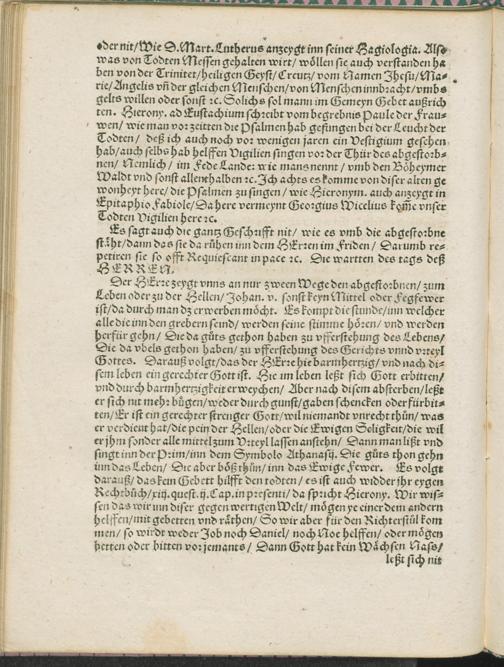 oder nit/ Wie D. Mart. Lutherus anzeygt inn seiner Hagiologia. Also
was von Todten Messen gehalten wirt/ wöllen sie auch verstanden ha
ben von der Trinitet/ heiligen Geyst/ Creutz/ vom Namen Jhesu/ Ma-
rie/ Angelis vñ der gleichen Menschen/ von Menschen innbracht/ vmbs
gelts willen oder sonst ꝛc. Solichs sol mann im Gemeyn Gebet außrich
ten. Hierony. ad Eustachium schreibt vom begrebnis Paule der Frau-
wen/ wie man vor zeitten die Psalmen hab gesungen bei der Leucht der
Todten/ deß ich auch noch vor wenigen jaren ein Vestigium gesehen
hab/ auch selbs hab helffen Vigilien singen vor der Thür des abgestorb-
nen/ Nemlich/ im Fede Lande: wie mans nennt/ vmb den Böheymer
Waldt vnd sonst allenthalben ꝛc. Ich achts es komme von diser alten ge
wonheyt here/ die Psalmen zu singen/ wie Hieronym. auch anzeygt in
Epitaphio Fabiole/ Da here vermeynt Georgius Wicelius kom̃e vnser
Todten Vigilien here ꝛc.
Es sagt auch die gantz Geschrifft nit/ wie es vmb die abgestorbne
stäht/ dann das sie da rühen inn dem HErren im Friden/ Darumb re-
petiren sie so offt Requiescant in pace ꝛc. Die wartten des tags deß
HERREN.
Der HErre zeygt vnns an nur zween Wege den abgestorbnen/ zum
Leben oder zu der Hellen/ Johan. v. sonst keyn Mittel oder Fegfewer
ist/ da durch man dz erwerben möcht. Es kompt die stunde/ inn welcher
alle die inn den grebern seind/ werden seine stimme hören/ vnd werden
herfür gehn/ Die da güts gethon haben zu vfferstehung des Lebens/
Die da vbels gethon haben/ zu vfferstehung des Gerichts vnnd vrteyl
Gottes. Darauß volgt/ das der HErre hie barmhertzig/ vnd nach di-
sem leben ein gerechter Gott ist. Hie im leben leßt sich Gott erbitten/
vnd durch barmhertzigkeit erweychen/ Aber nach disem absterben/ leßt
er sich nit mehr bügen/ weder durch gunst/ gaben schencken oder fürbit-
ten/ Er ist ein gerechter strenger Gott/ wil niemandt vnrecht thün/ was
er verdient hat/ die pein der Hellen/ oder die Ewigen Seligkeit/ die wil
er jhm sonder alle mittel zum Vrteyl lassen anstehn/ Dann man lißt vnd
singt inn der Prim/ inn dem Symbolo Athanasij. Die güts thon gehn
inn das Leben/ Die aber böß thün/ inn das Ewige Fewer. Es volgt
darauß/ das ken Gebett hilfft den todten/ es ist auch widder jhr eygen
Rechtbüch/ xiij. quest. ij. Cap. in presenti/ da spricht Hierony. Wir wis-
sen das wir inn diser gegenwertigen Welt/ mögen ye einer dem andern
helffen/ mit gebetten vnd räthen/ So wir aber für den Richterstül kom
men/ so wirdt weder Job noch Daniel/ noch Noe helffen/ oder mögen
betten oder bitten vor jemants/ Dann Gott hat kein Wächsen Nass/
leßt sich nit